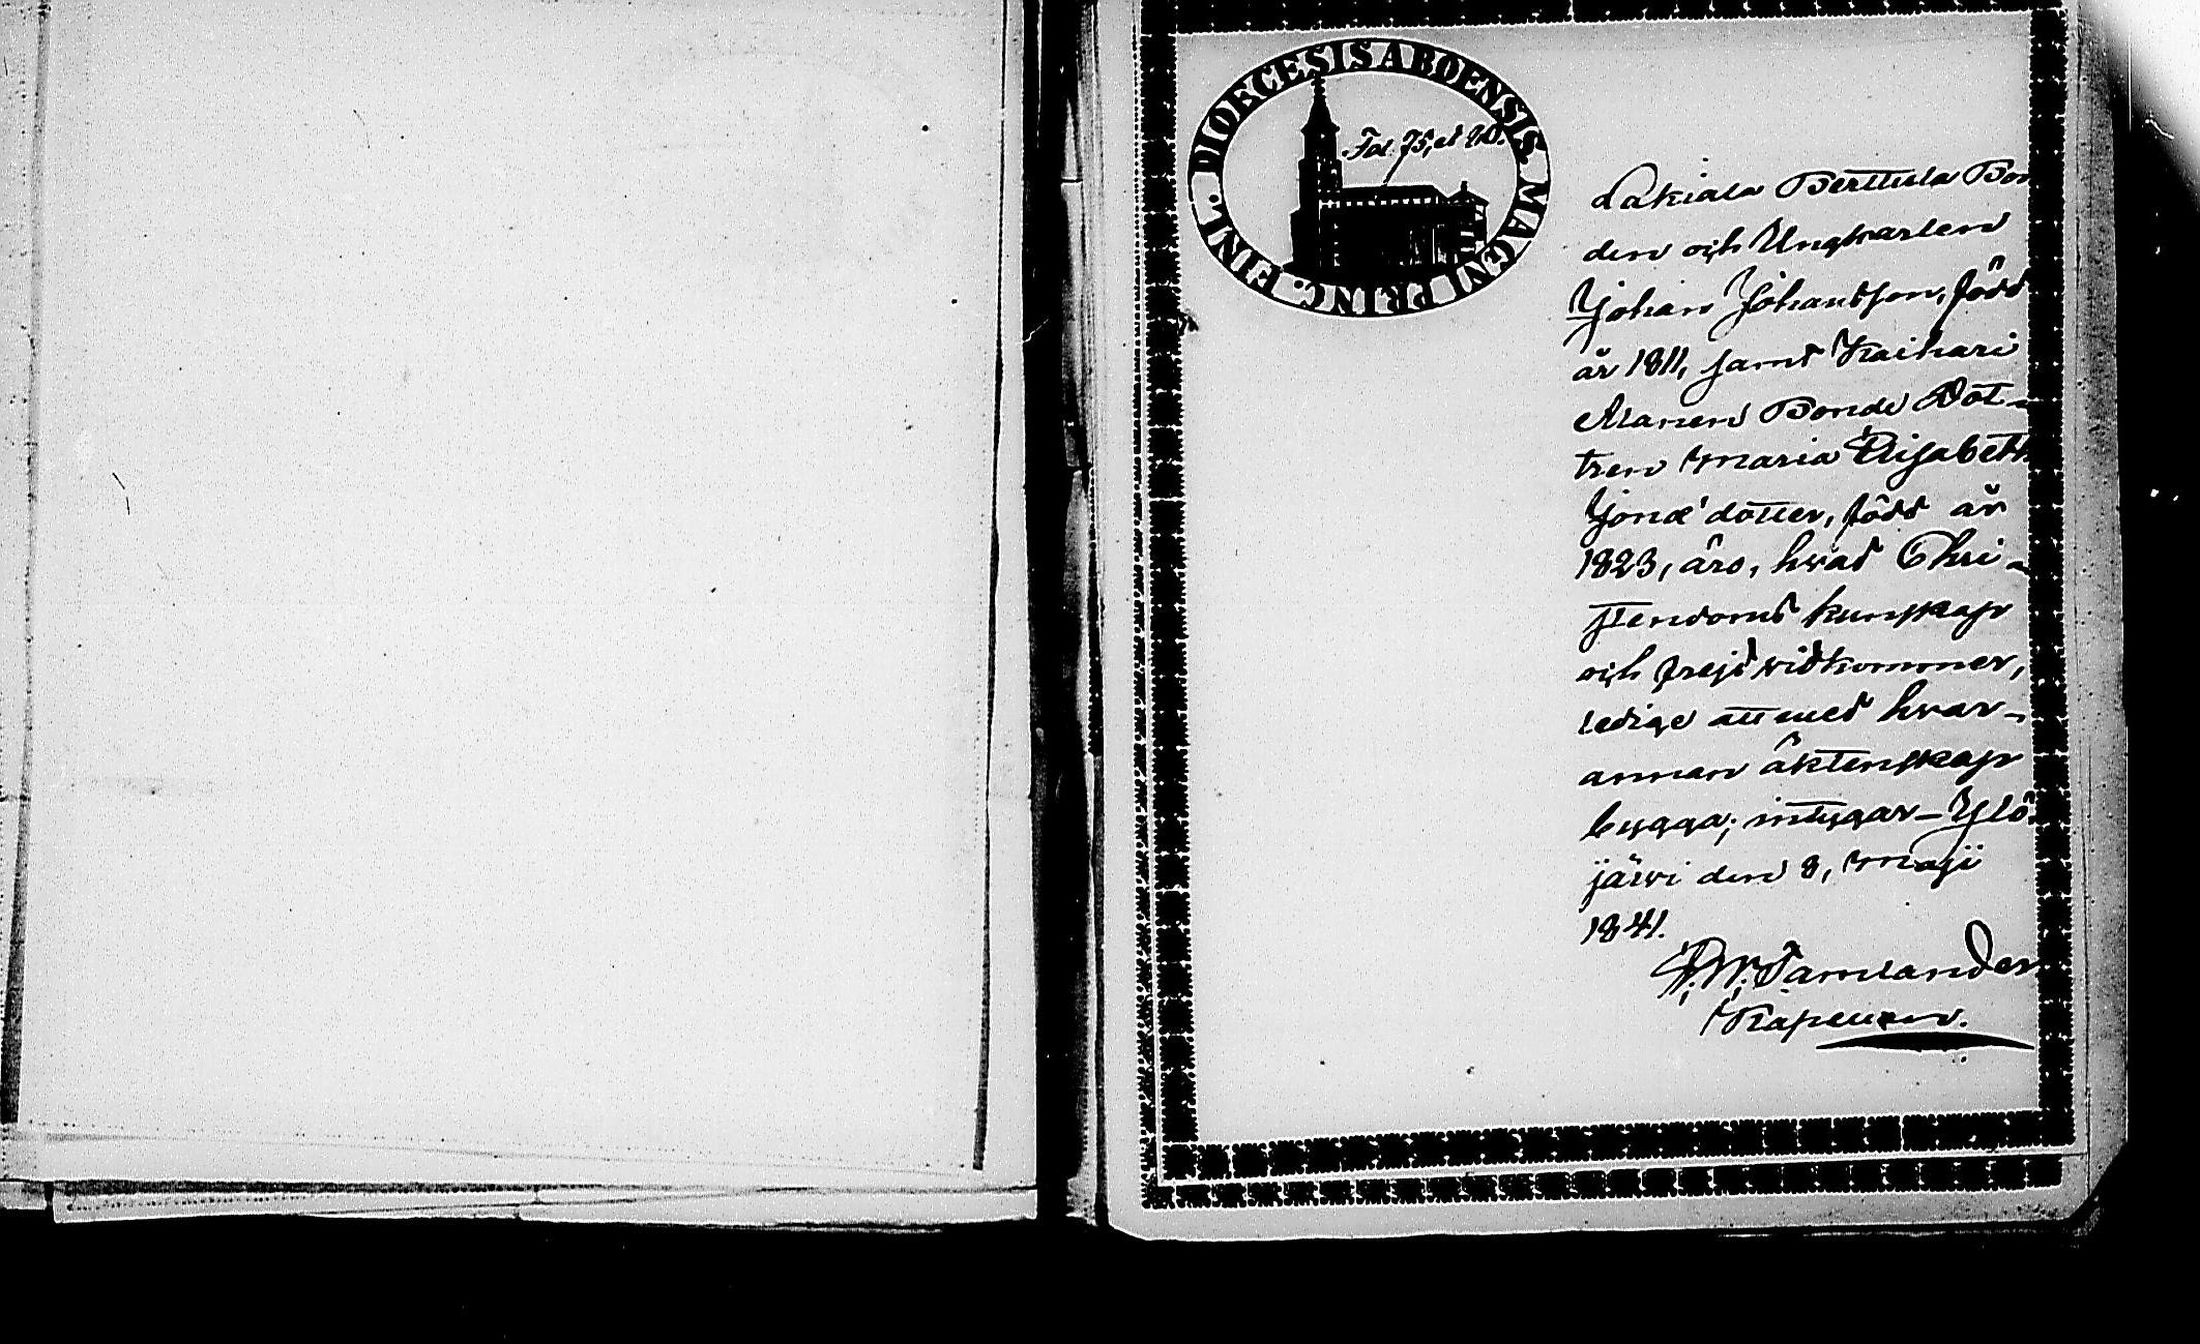 DIOECESIS ABOENSIS. MAGNI PRINC. FINL.
Fol. 75, et 20.
Lakiala Berttula Bon
den och Ungkarlen
Johan Johansson, född
år 1811, samt Kaihari
Manen Bonde Dot-
tren Maria Elisabeth
Jonæ dotter, född år
1823, äro, hvad Chri-
stendoms kunskap
och frejd vidkommer,
ledige att med hvar-
annan äktenskap
bygga; intygar - Ylö
järvi den 8, Maji
1841.
Tamlander
Kapellan.